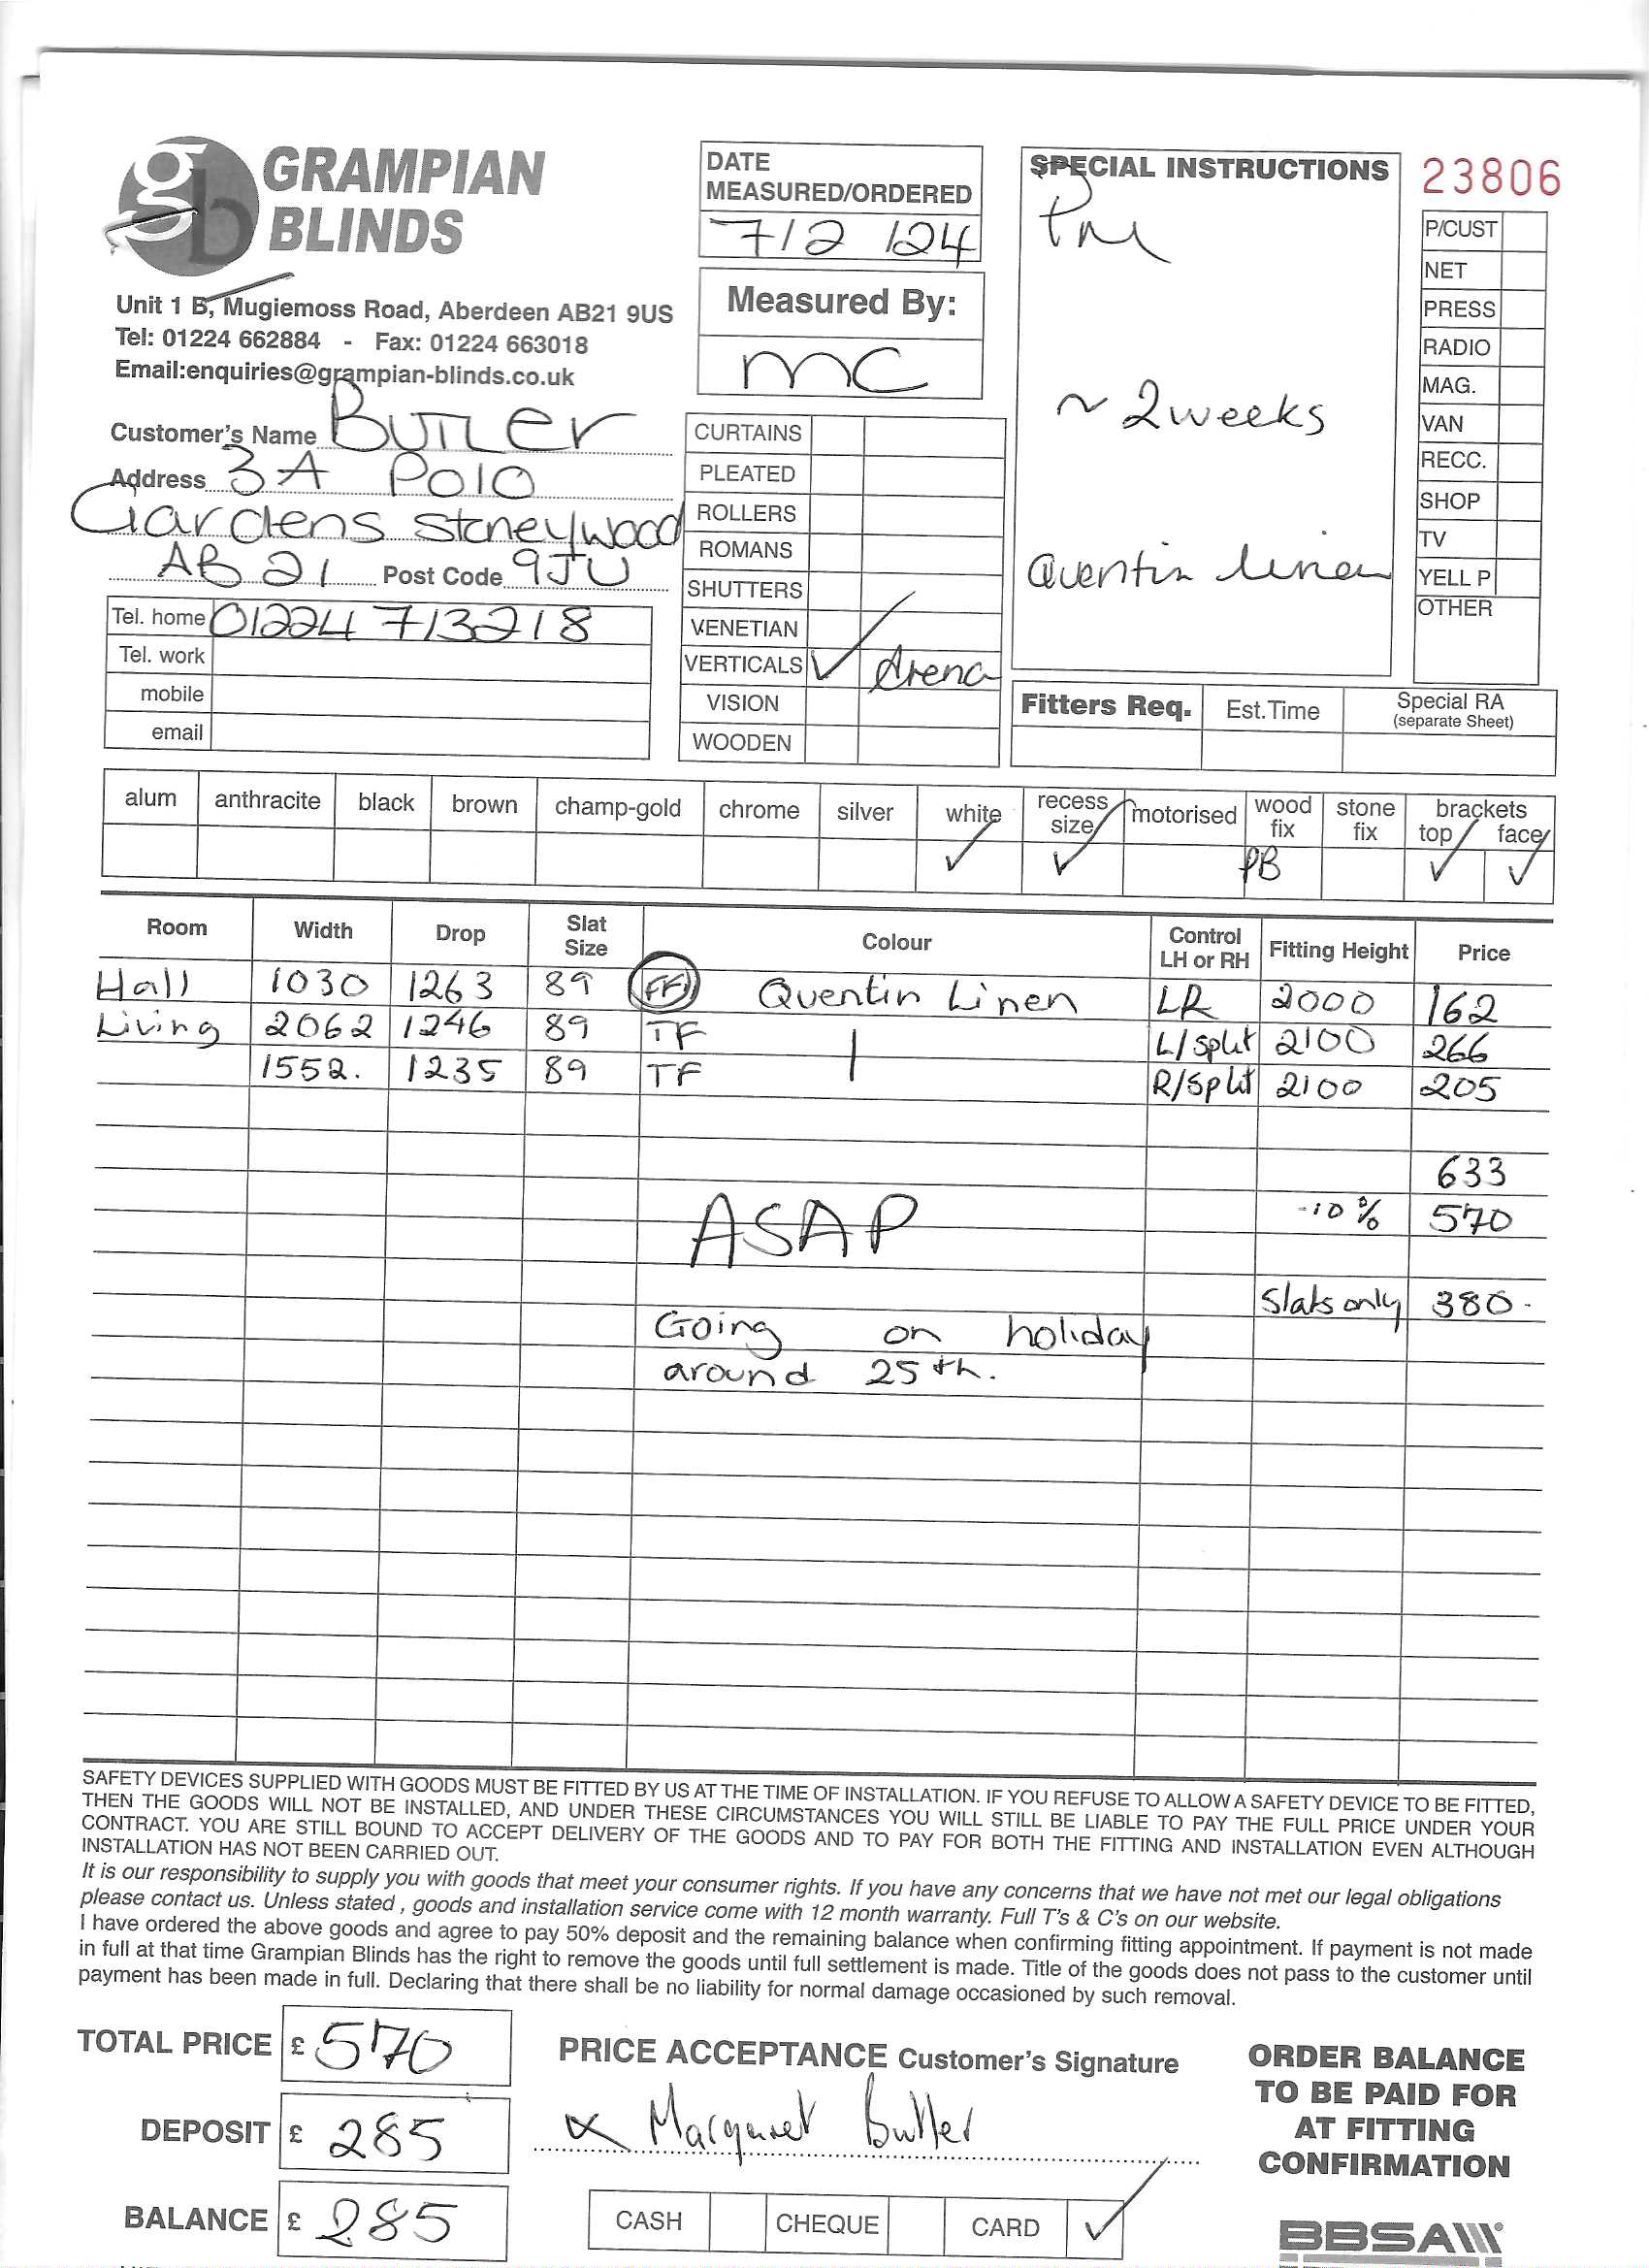 GRAMPIAN
BLINDS
Unit 1 B, Mugiemoss Road, Aberdeen AB21 9US
Tel: 01224 662884 - Fax: 01224 663018
Email:enquiries@grampian-blinds.co.uk
DATE
MEASURED/ORDERED
7/2/24
Measured By:
MC
SPECIAL INSTRUCTIONS
PM
~ 2 weeks
Quentin linen
23806
P/CUST
NET
PRESS
RADIO
MAG.
VAN
RECC.
SHOP
TV
YELL P
OTHER
Customer's Name Butler
Address 3A Polo
Gardens Stoneywood
AB21 Post Code 9JU
Tel. home 01224 713218
Tel. work
mobile
email
CURTAINS
PLEATED
ROLLERS
ROMANS
SHUTTERS
VENETIAN
VERTICALS ✓ Arena
VISION
WOODEN
Fitters Req. Est.Time Special RA
(separate Sheet)
alum anthracite black brown champ-gold chrome silver white recess size motorised wood fix stone fix brackets top face
✓ ✓ PB ✓ ✓
Room Width Drop Slat Size Colour Control LH or RH Fitting Height Price
Hall 1030 1263 89 FF Quentin Linen LR 2000 162
Living 2062 1246 89 TF | L/split 2100 266
1552. 1235 89 TF R/split 2100 205
633
-10% 570
ASAP
Slats only 380-
Going on holiday
around 25th.
SAFETY DEVICES SUPPLIED WITH GOODS MUST BE FITTED BY US AT THE TIME OF INSTALLATION. IF YOU REFUSE TO ALLOW A SAFETY DEVICE TO BE FITTED,
THEN THE GOODS WILL NOT BE INSTALLED, AND UNDER THESE CIRCUMSTANCES YOU WILL STILL BE LIABLE TO PAY THE FULL PRICE UNDER YOUR
CONTRACT. YOU ARE STILL BOUND TO ACCEPT DELIVERY OF THE GOODS AND TO PAY FOR BOTH THE FITTING AND INSTALLATION EVEN ALTHOUGH
INSTALLATION HAS NOT BEEN CARRIED OUT.
It is our responsibility to supply you with goods that meet your consumer rights. If you have any concerns that we have not met our legal obligations
please contact us. Unless stated , goods and installation service come with 12 month warranty. Full T's & C's on our website.
I have ordered the above goods and agree to pay 50% deposit and the remaining balance when confirming fitting appointment. If payment is not made
in full at that time Grampian Blinds has the right to remove the goods until full settlement is made. Title of the goods does not pass to the customer until
payment has been made in full. Declaring that there shall be no liability for normal damage occasioned by such removal.
TOTAL PRICE £ 570
DEPOSIT £ 285
BALANCE £ 285
PRICE ACCEPTANCE Customer's Signature
x Margaret Butler
CASH CHEQUE CARD ✓
ORDER BALANCE
TO BE PAID FOR
AT FITTING
CONFIRMATION
BBSA